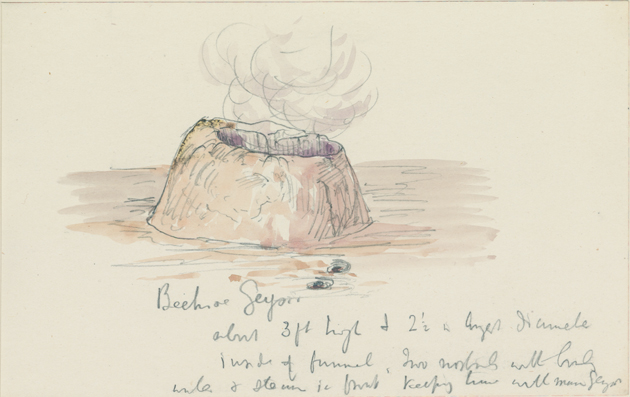 Beehive Geyser
about 3ft high & 2½ in largest diameter
inside of funnel, Two nostrils with boiling
water & steam in front keeping time with main Geyser